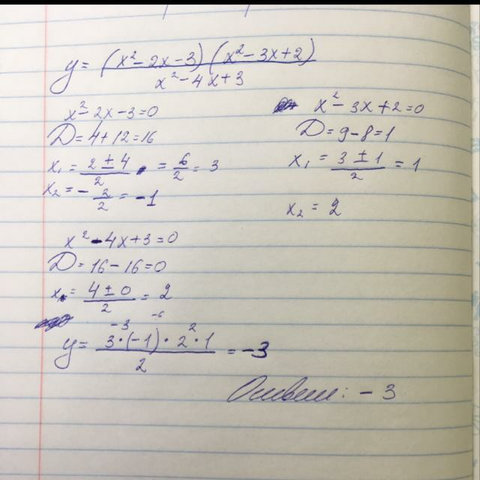 y = (x² - 2x - 3)(x² - 3x + 2) / x² - 4x + 3
x² - 2x - 3 = 0
D = 4 + 12 = 16
x₁ = 2 ± 4 / 2 = 6/2 = 3
x₂ = - 2/2 = -1
x² - 3x + 2 = 0
D = 9 - 8 = 1
x₁ = 3 ± 1 / 2 = 1
x₂ = 2
x² - 4x + 3 = 0
D = 16 - 16 = 0
x = 4 ± 0 / 2 = 2
-3 -6 2
y = 3·(-1)·2·1 / 2 = -3
Ответ: -3